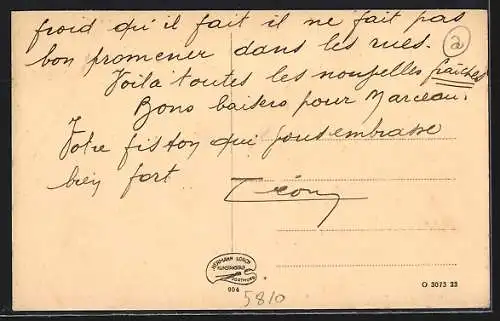 froid qu'il fait il ne fait pas
bon promener dans les rues.
Voilà toutes les nouvelles fraîches
Bons baisers pour Marceau.
Votre fiston qui vous embrasse
bien fort
Léon
HERMANN LORCH
KUNSTANSTALT
DORTMUND
006
5810
O 3073 23